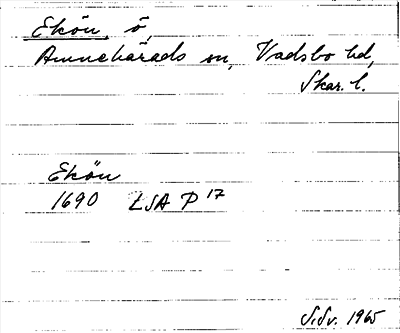 Ekön, ö,
Amnehärads sn, Vadsbo hd,
Skar. l.
Ekön
1690 LSA P 17
S.Sv. 1965